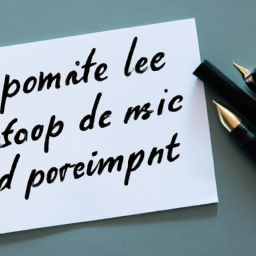 pomite lee
foop de msic
d poreimpnt